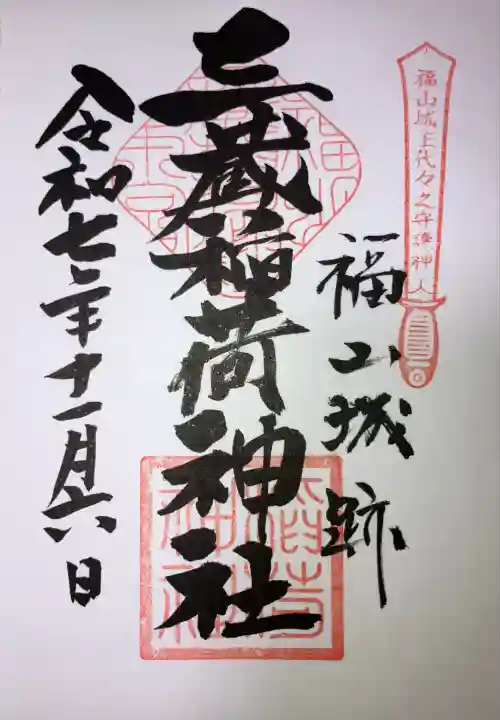 福山城主代々之守護神人
福山城跡
三蔵稲荷神社
令和七年十一月六日